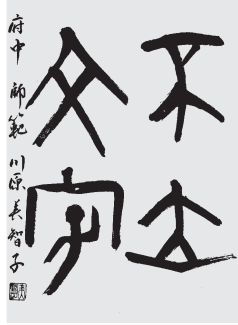 不立
文字
府中 師範 川原美智子